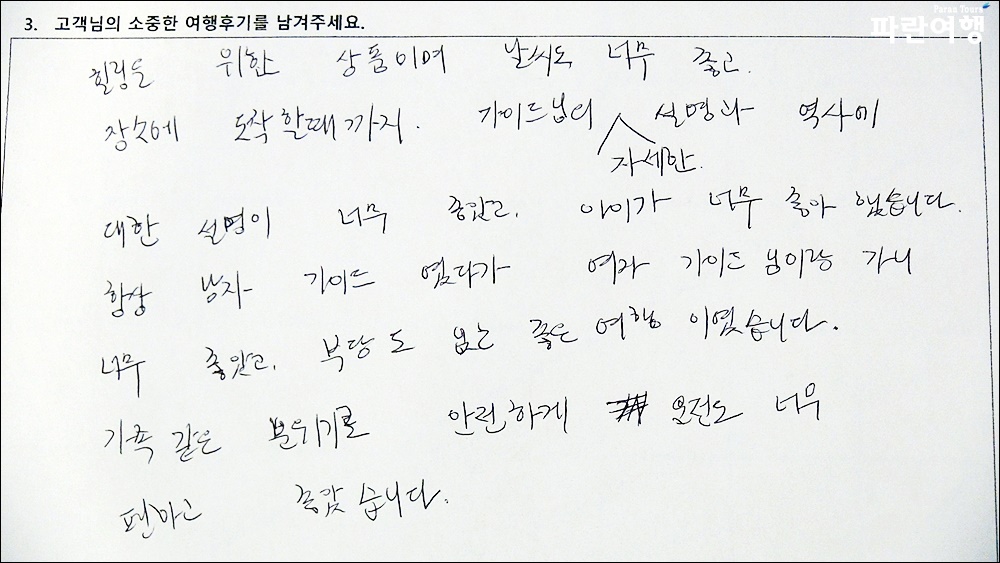 Paran Tours
파란여행
3. 고객님의 소중한 여행후기를 남겨주세요.
힐링을 위한 상품이며 날씨도 너무 좋고.
장소에 도착할때까지. 가이드님의 설명과 역사에
자세한.
대한 설명이 너무 좋았고. 아이가 너무 좋아 했습니다.
항상 남자 가이드 였다가 여자 가이드 님이랑 가니
너무 좋았고. 부담도 없는 좋은 여행 이였습니다.
가족 같은 분위기로 안전하게 운전도 너무
편하고 좋았습니다.